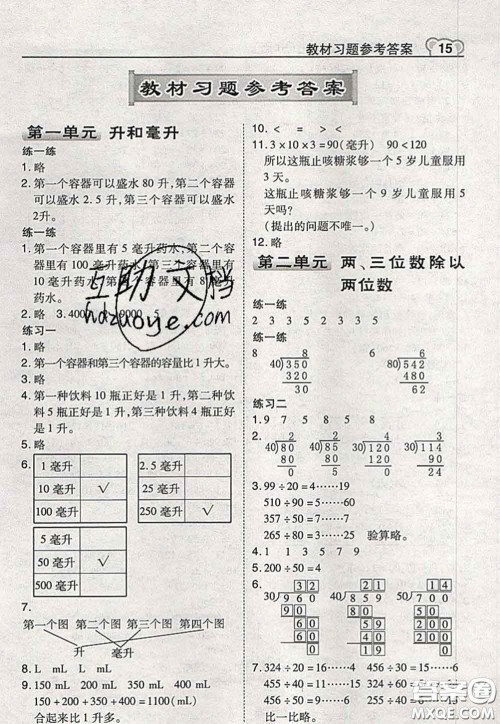 教材习题参考答案 15
教材习题参考答案
第一单元 升和毫升
练一练
1. 略
2. 第一个容器可以盛水 80 升,第二个容器
可以盛水 2.5 升,第三个容器可以盛水
2升。
练一练
1. 第一个容器里有 5 毫升药水,第二个容
器里有 100 毫升药水,第三个容器里有 8 毫升
药水。
2. 略 3. 4000 9000 5
练习一
1. 略
2. 第一个容器和第三个容器的容量比 1 升大。
3. 略
4. 第一种饮料 10 瓶正好是 1 升,第二种饮
料 4 瓶正好是 1 升,第三种饮料 5 瓶正
好是 1 升。
5. 略
6.
1 毫升
10 毫升 √
100 毫升
2.5 毫升
25 毫升
250 毫升 √
5 毫升
50 毫升 √
500 毫升
7.
第一个图 第二个图 第三个图 第四个图
升 毫升
8. L mL L mL
9. 150 mL 200 mL 400 mL 150 mL
150+200+400+150=900(毫升)
合起来比 1 升多。
10. < = > <
11. 3×10×3=90(毫升) 90<120
所以这瓶止咳糖浆够一个 5 岁儿童服用
3 天。
这瓶止咳糖浆够一个 9 岁儿童服用 5
天吗?
(提出的问题不唯一。)
12. 略
第二单元 两、三位数除以
两位数
练一练
2 3 5 2 3 5 2 3 3 5
练一练
8 6
8 40)350 6 80)542
320 480
30 62
练习二
1. 9 7 5 8 5 8
3. 96÷20=4……16 299÷70=4……19
510÷90=5……60 465÷50=9……15
357÷50=7……7
265÷30=8……25 验算略。
4. 1 1 3 5 9 9
5. 200÷50=4
7. 324÷50=6……24 456÷50=9……6
324÷30=10……24 456÷30=15……6
比一比略。
互助文档
hdzuoye.com
答案圈
MXQE.COM